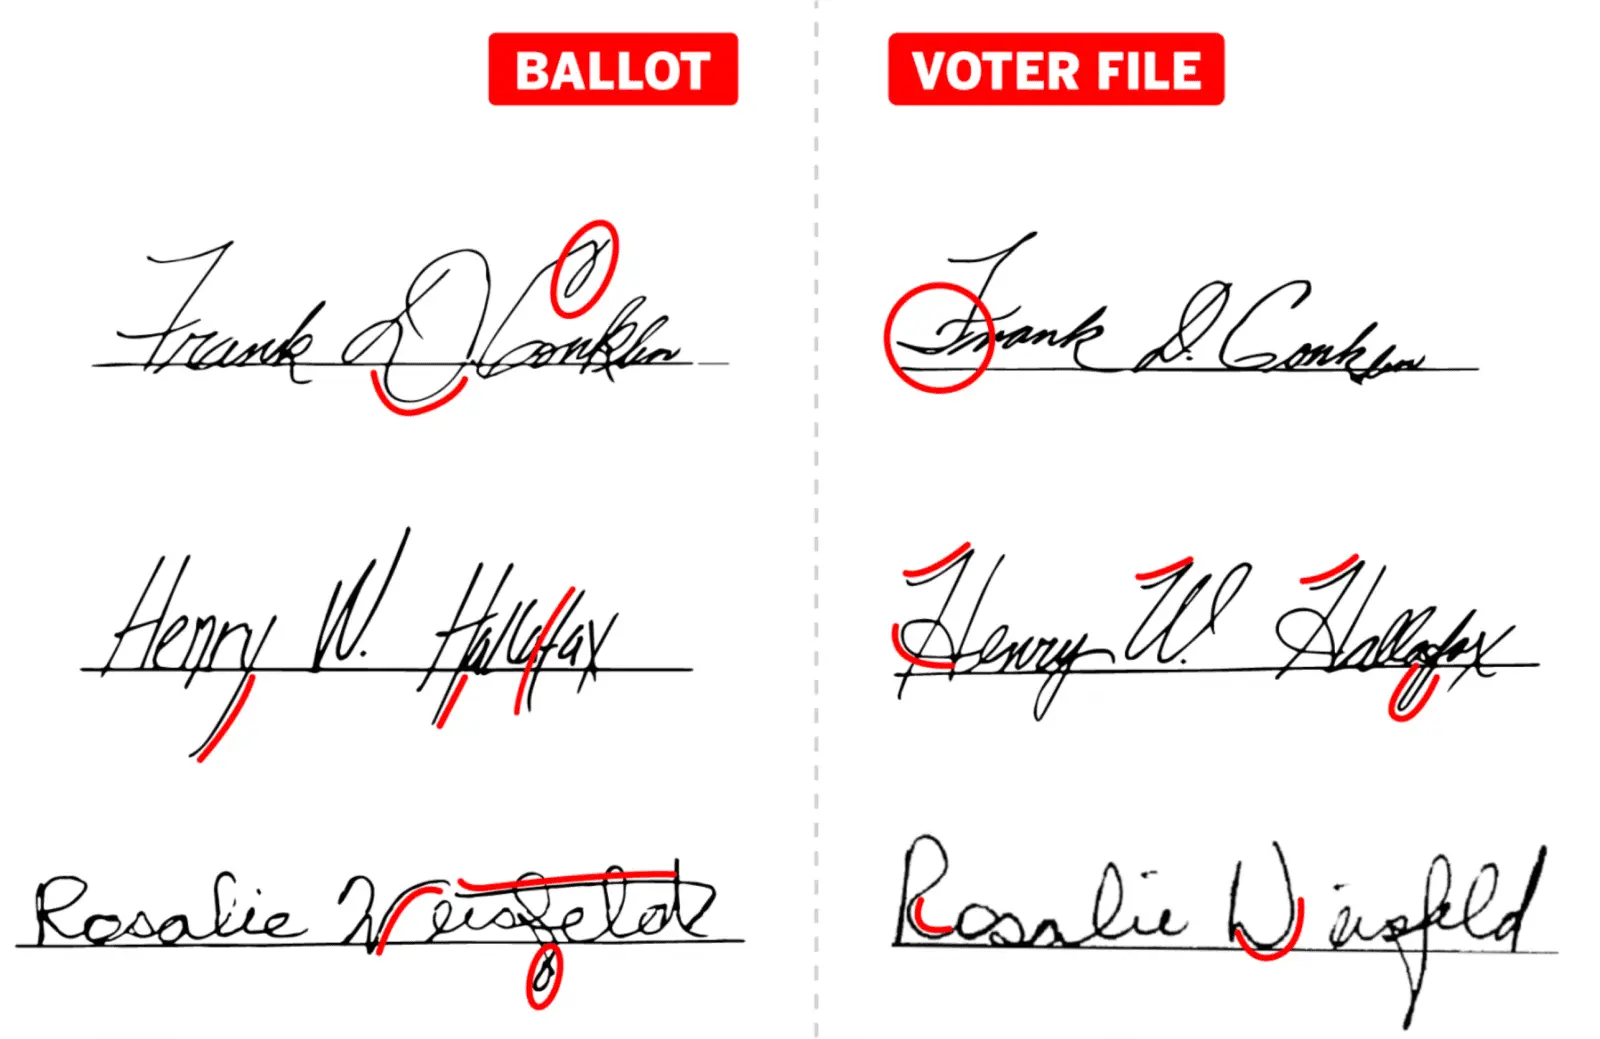 BALLOT VOTER FILE
Frank D. Conklin Frank D. Conklin
Henry W. Hallafax Henry W. Hallafax
Rosalie Weisfeld Rosalie Weisfeld